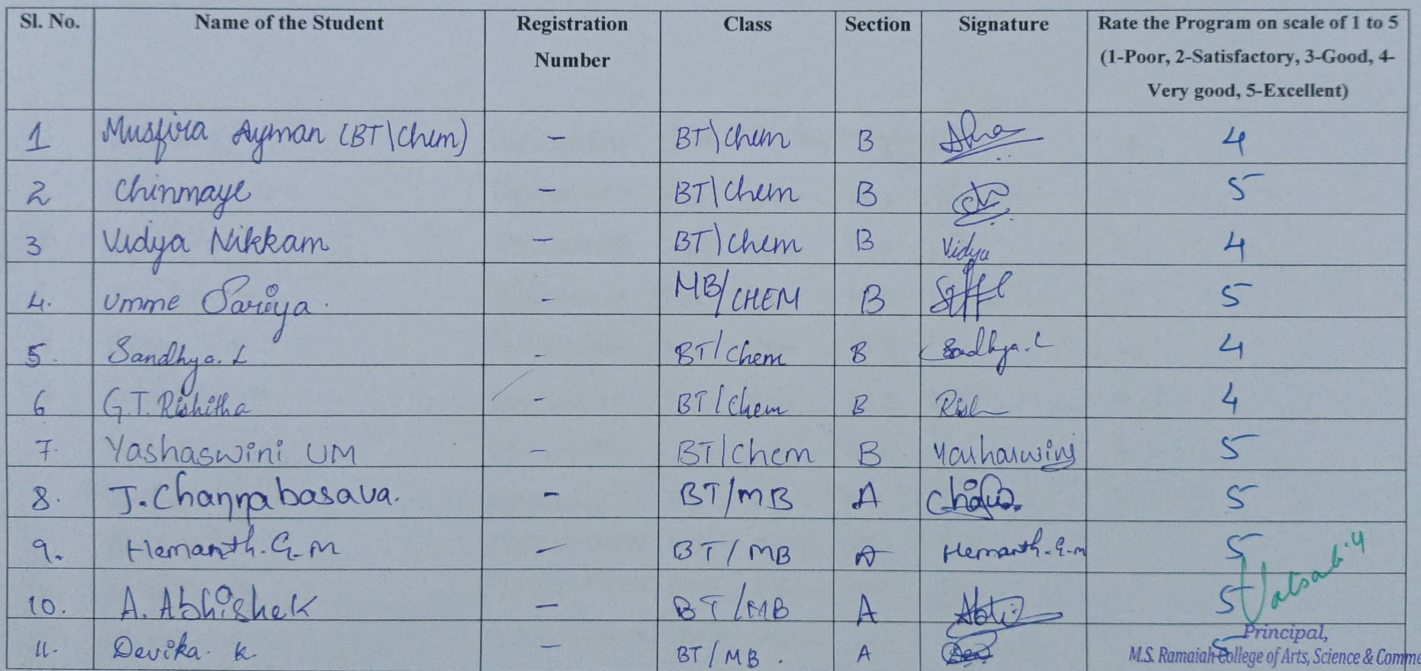 Sl. No. Name of the Student Registration Number Class Section Signature Rate the Program on scale of 1 to 5 (1-Poor, 2-Satisfactory, 3-Good, 4-Very good, 5-Excellent)
1 Musfira Ayman (BT\Chem) - BT\Chem B 4
2 Chinmaye - BT\Chem B 5
3 Vidya Nikkam - BT\Chem B Vidya 4
4. Umme Sariya. - MB/CHEM B 5
5. Sandhya. L - BT/Chem B Sandhya. L 4
6 G.T. Rishitha - BT/Chem B 4
7. Yashaswini UM - BT/Chem B Yashaswini 5
8. J. Channabasava. - BT/MB A 5
9. Hemanth. G. M - BT/MB A Hemanth. G. m 5
10. A. Abhishek - BT/MB A 5
11. Devika. K. - BT/MB. A 5
Principal,
M.S. Ramaiah College of Arts, Science & Comme